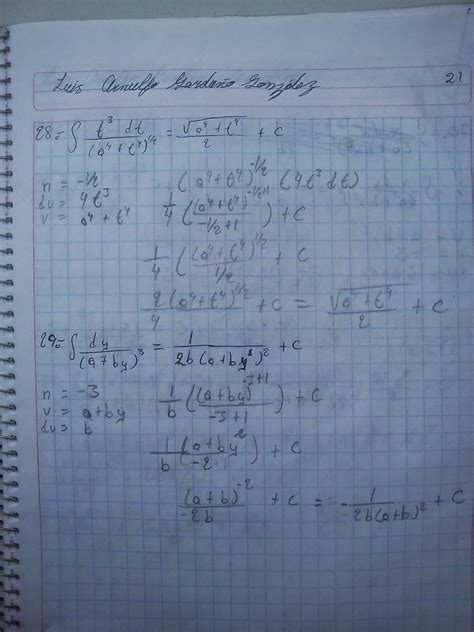 Luis Arnulfo Gordaño González 21
28.- ∫ t³ dt / (a⁴+t⁴)^1/2 = √(a⁴+t⁴) / 2 + C
n = -1/2 (a⁴+t⁴)^-1/2 (4t³ dt)
dv = 4t³ 1/4 ((a⁴+t⁴)^-1/2+1 / -1/2+1) + C
v = a⁴+t⁴
1/4 ((a⁴+t⁴)^1/2 / 1/2) + C
2/4 (a⁴+t⁴)^1/2 + C = √(a⁴+t⁴) / 2 + C
29.- ∫ dy / (a+by)³ = 1 / 2b(a+by)² + C
n = -3 1/b ((a+by)^-3+1 / -3+1) + C
v = a+by
dv = b
1/b ((a+by)² / -2) + C
(a+b)^-2 / -2b + C = - 1 / -2b(a+b)² + C